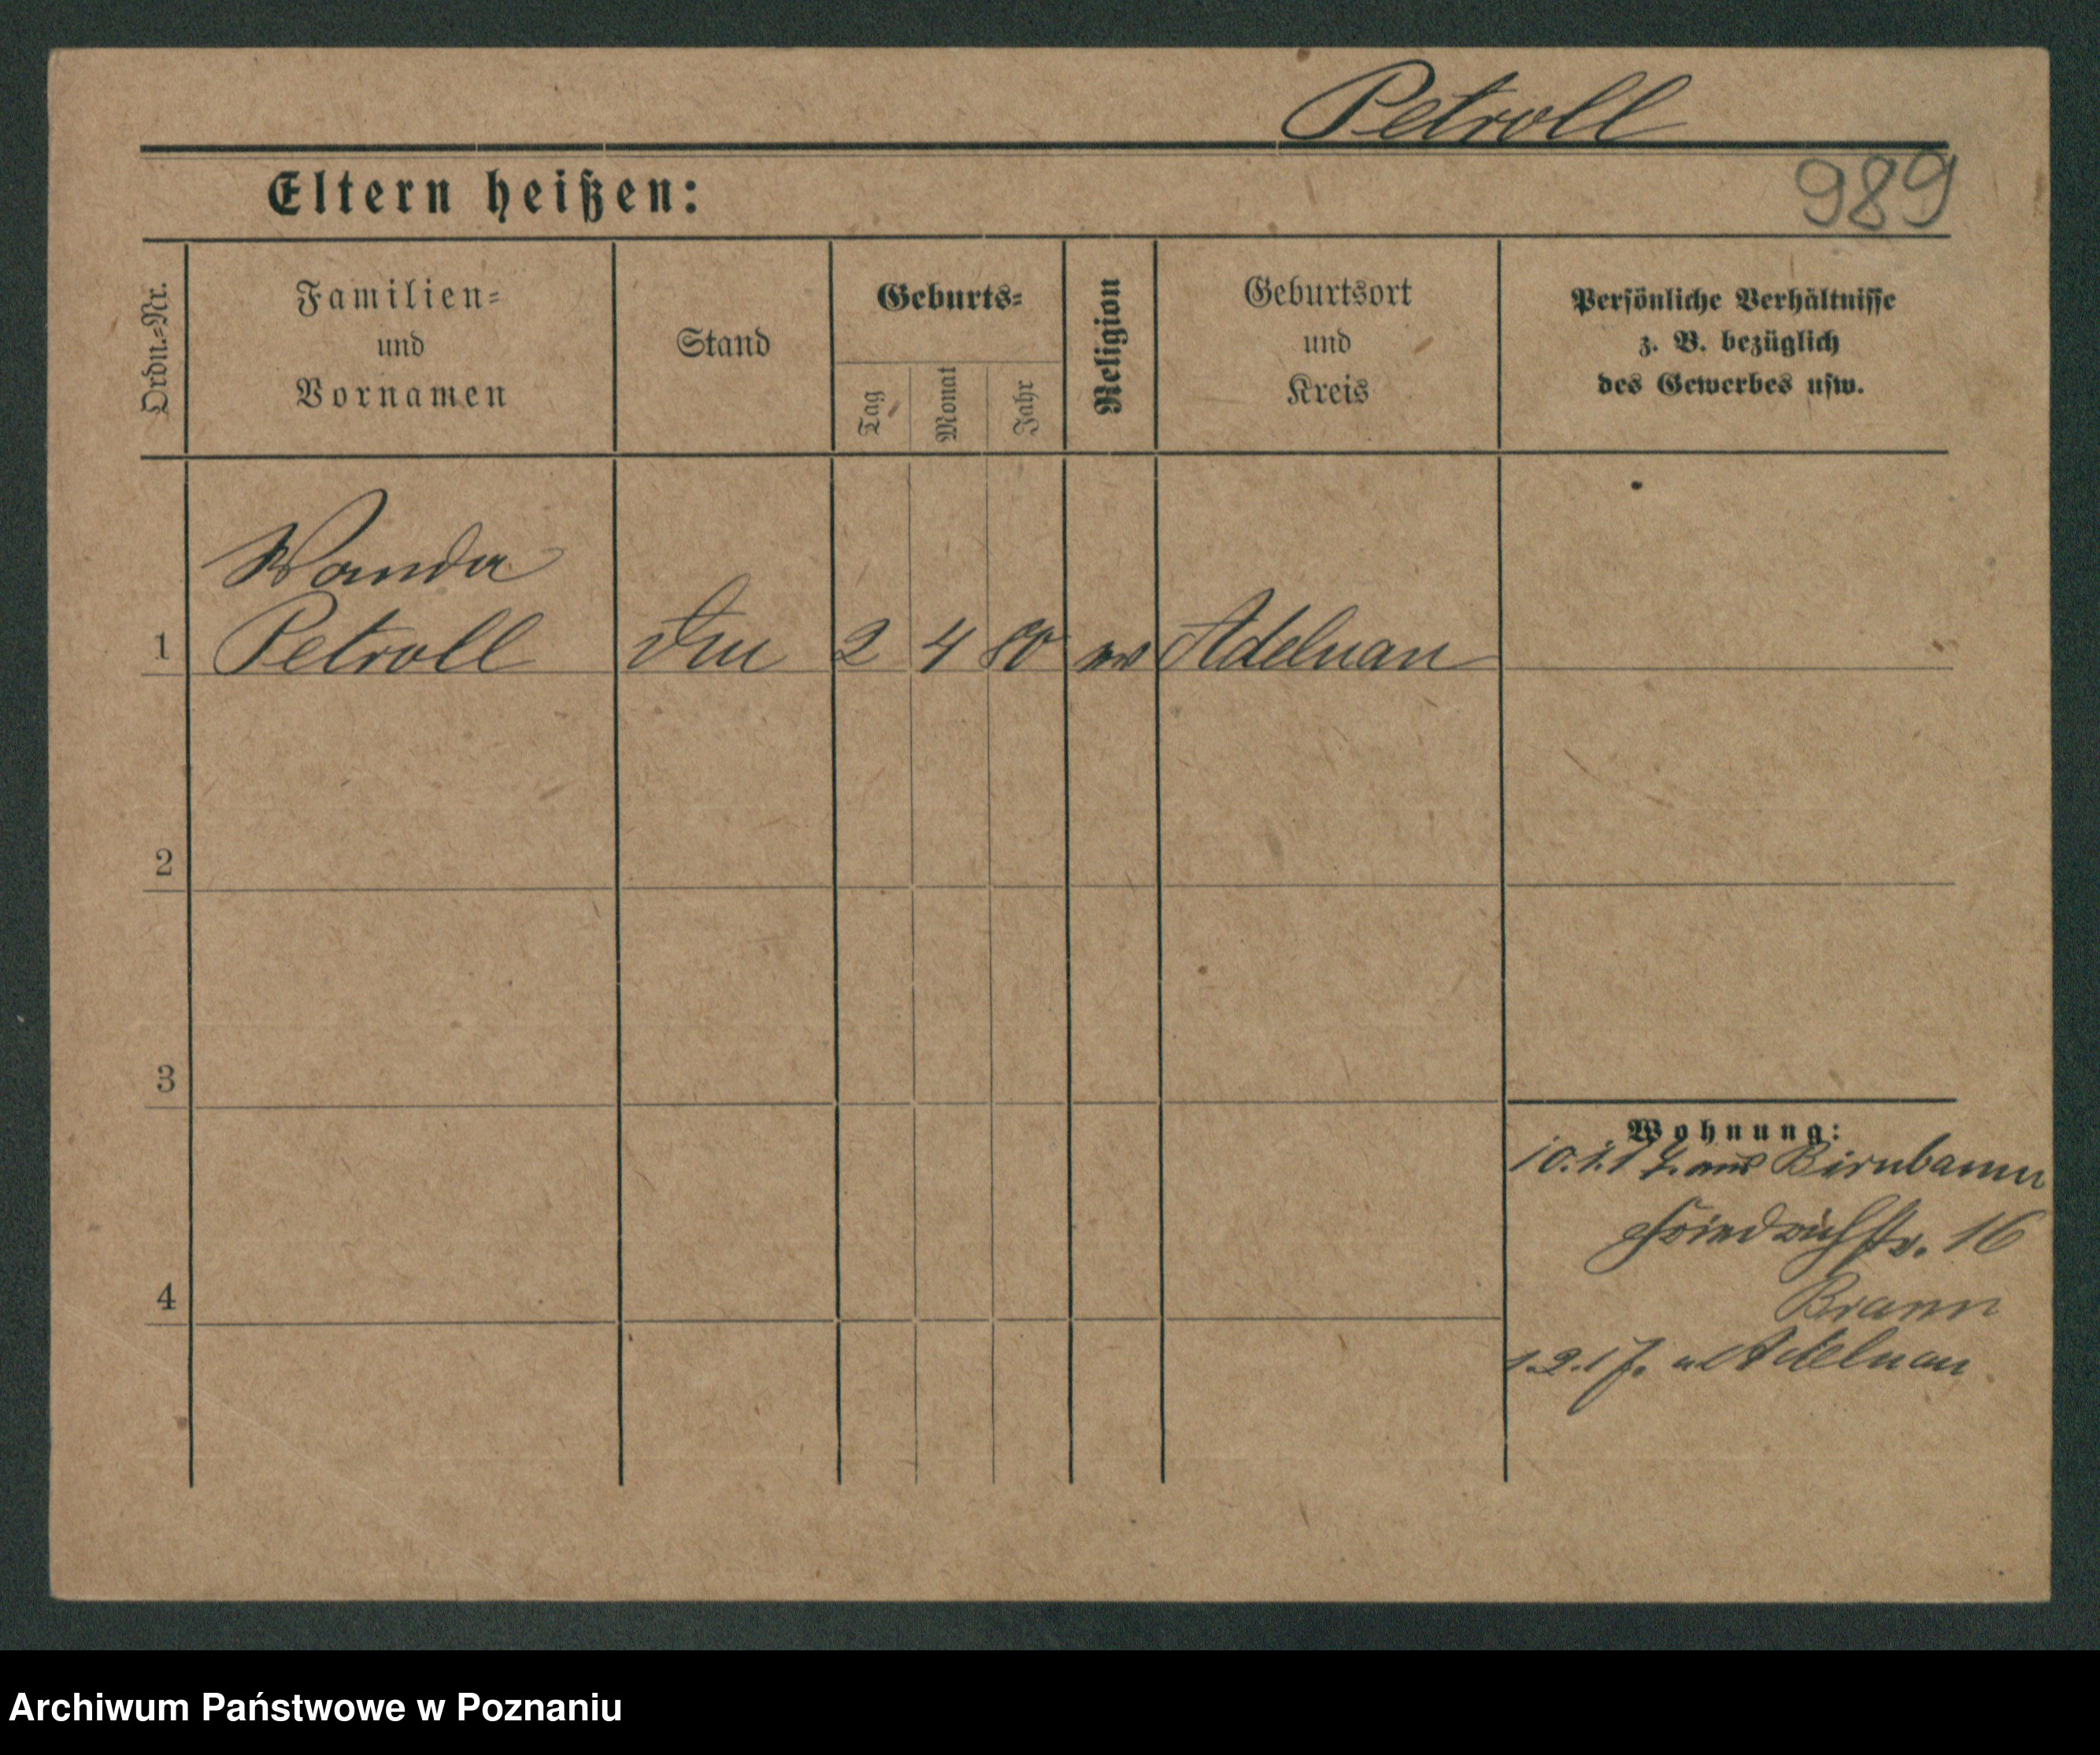 Petroll
989
Eltern heißen:
Ordn.=Nr.
Familien=
und
Vornamen
Stand
Geburts=
Tag
Monat
Jahr
Religion
Geburtsort
und
Kreis
Persönliche Verhältnisse
z. B. bezüglich
des Gewerbes usw.
Wanda
1 Petroll 2 4 80 Adelnau
2
3
4
Wohnung:
aus Birnbaum
Friedrichstr. 16
Brann
1.2.17. Adelnau
Archiwum Państwowe w Poznaniu